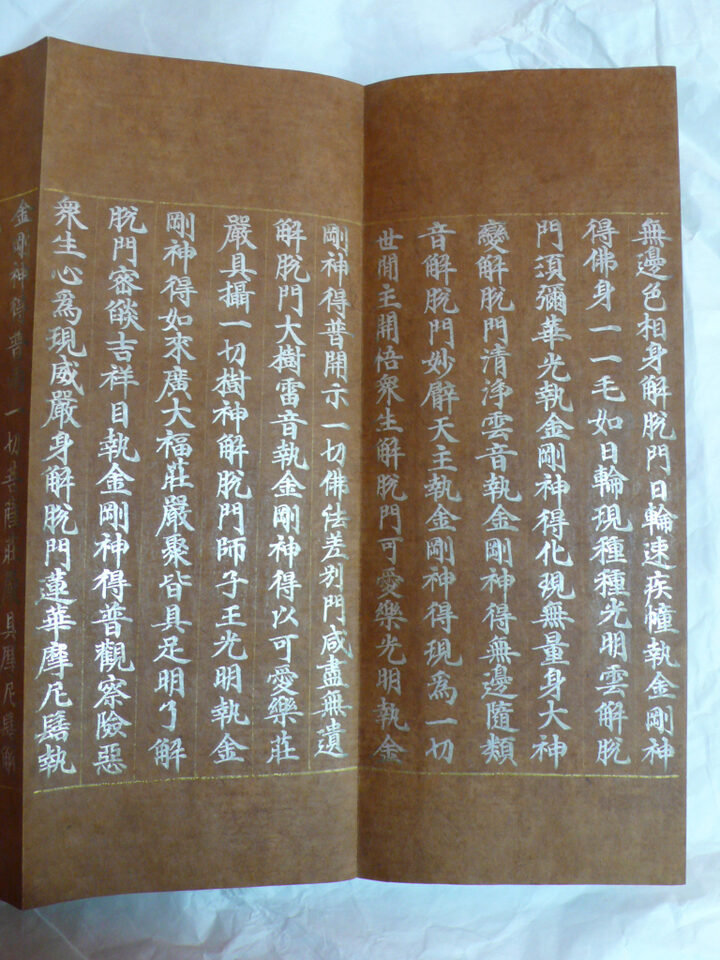 無邊色相身解脫門日輪速疾幢執金剛神
得佛身一一毛如日輪現種種光明雲解脫
門須彌華光執金剛神得化現無量身大神
變解脫門清淨雲音執金剛神得無邊隨類
音解脫門妙臂天主執金剛神得現爲一切
世間主開悟衆生解脫門可愛樂光明執金
剛神得普開示一切佛法差別門咸盡無遺
解脫門大樹雷音執金剛神得以可愛樂莊
嚴具攝一切樹神解脫門師子王光明執金
剛神得如來廣大福莊嚴聚皆具足明了解
脫門密燄吉祥目執金剛神得普觀察險惡
衆生心爲現威嚴身解脫門蓮華摩尼髻執
金剛神得普一切菩薩莊嚴具摩尼髻解